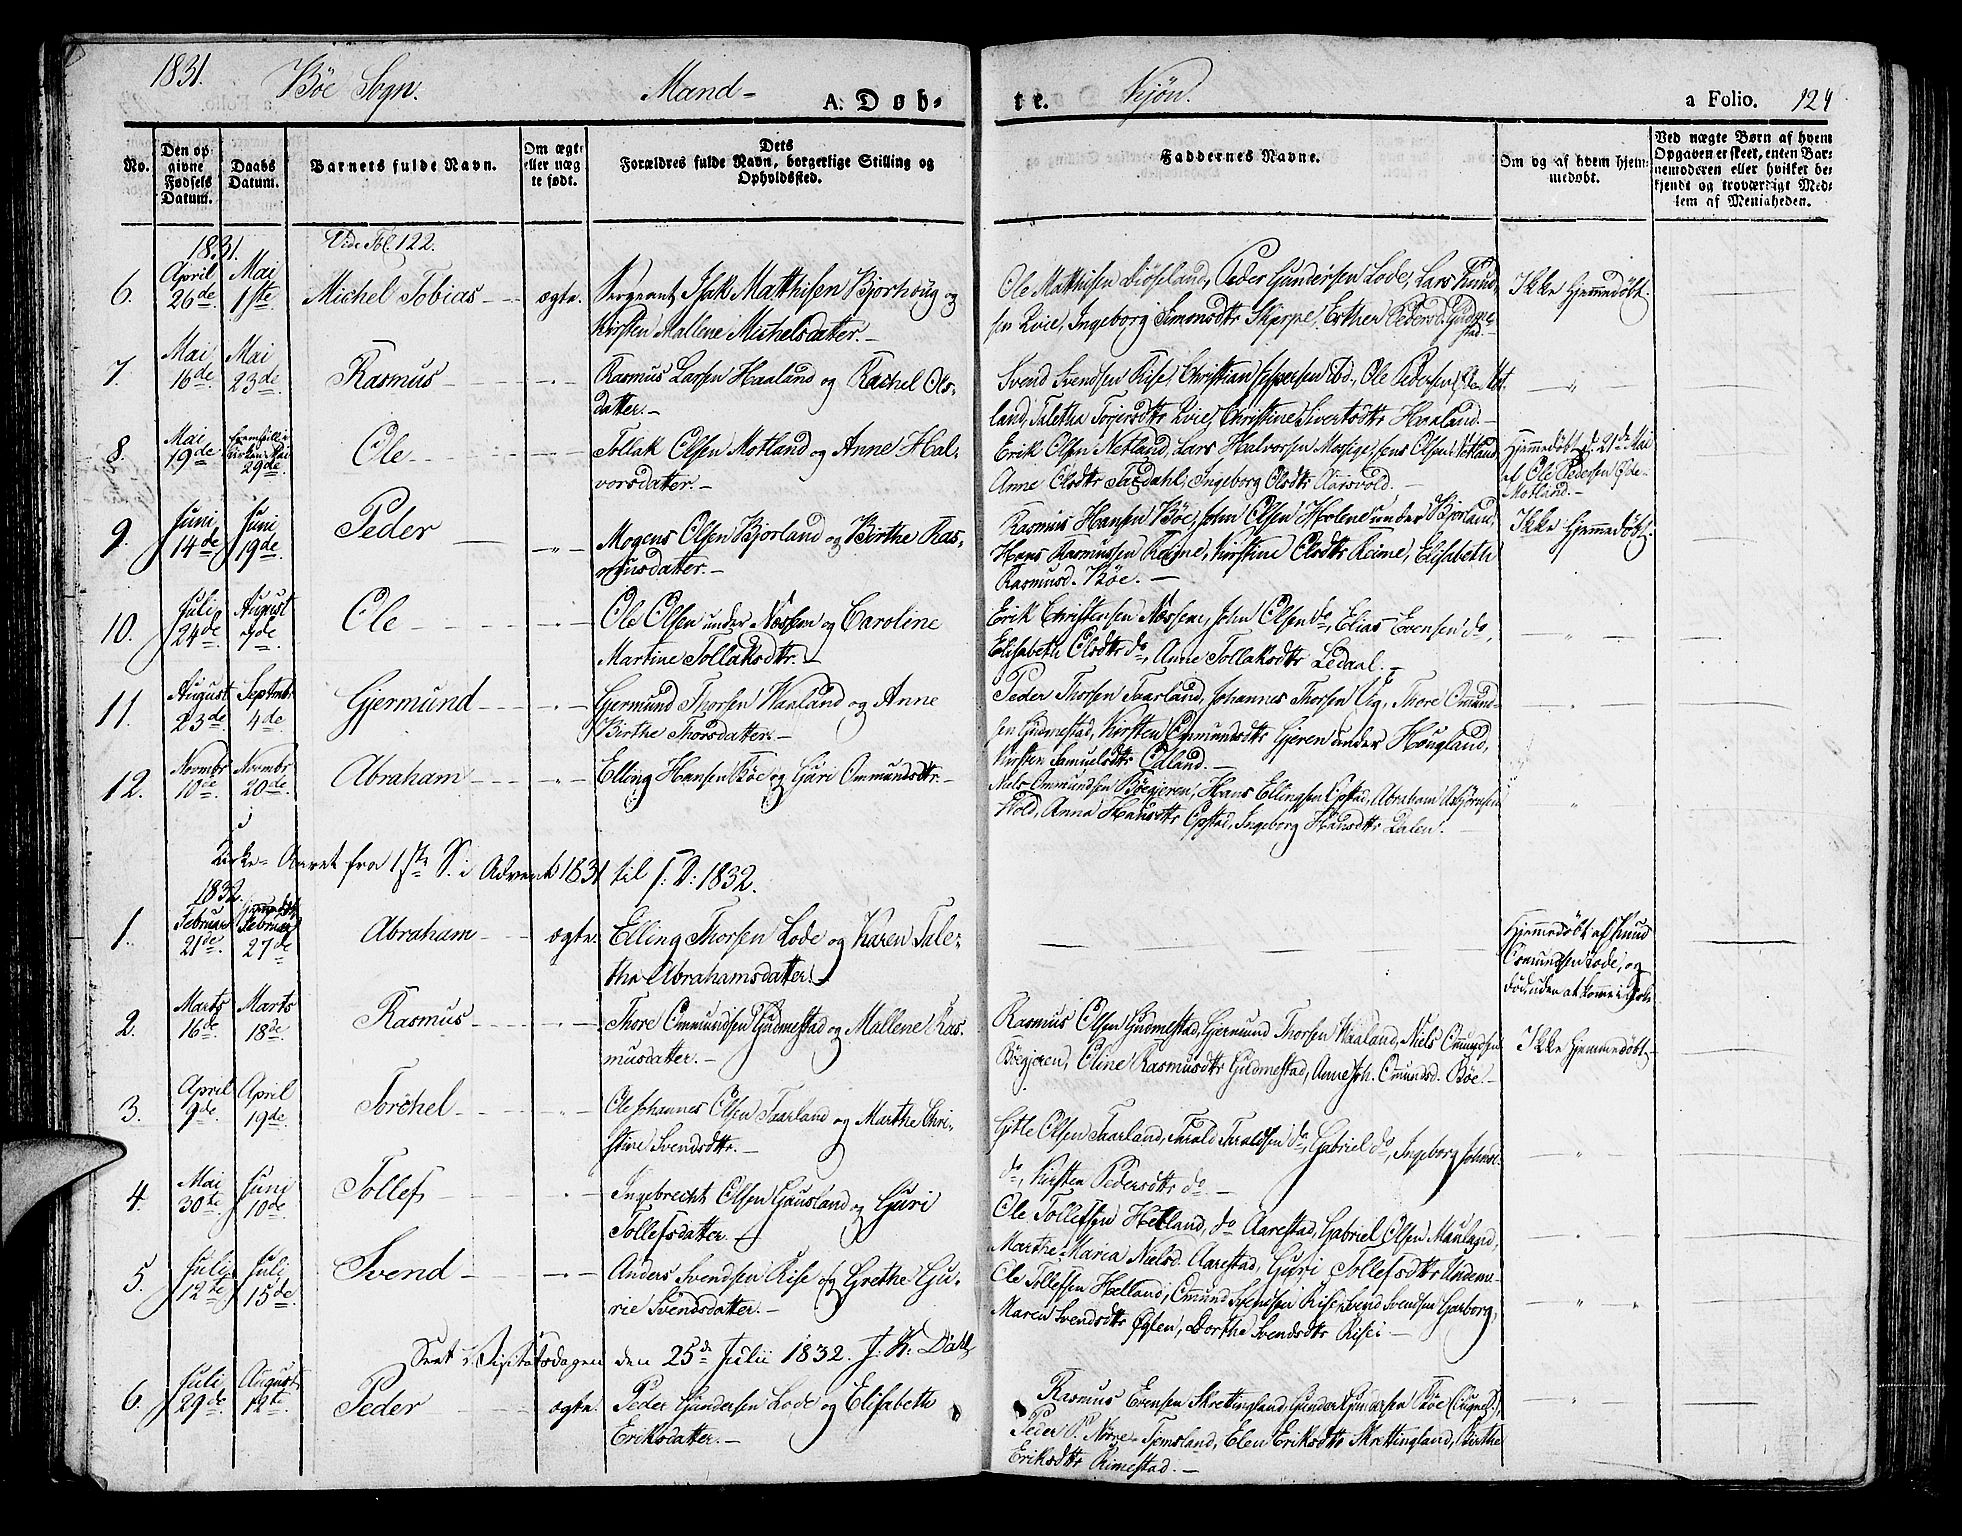 1831. Bøe Sogn. Mand- A. Døb-
te. Kjøn. a Folio. 124
No.
Den opgivne Fødsels Datum.
Daabs Datum.
Barnets fulde Navn.
Om ægte eller uægte født.
Dets Forældres fulde Navn, borgerlige Stilling og Opholdssted.
Faddernes Navne.
Om og af hvem hjemmedøbt.
Ved uægte Børn af hvem Opgaven er skeet, enten Barnemoderen eller hvilket bekjendt og troværdigt Medlem af Menigheden.
1831. Vide Fol. 122.
6. April 26de Mai 1ste Michel Tobias ægte. Sergeant Isak Matthisen Bjorhoug og
Kirsten Mallene Michelsdatter.
Ole Matthisen Fiøseland, Peder Gundersen Lode, Lars Knud-
sen Qvie, Ingeborg Simonsdttr Skjerpe, Esther Pedersd. Gudme-
stad.
Ikke Hjemmedøbt.
7. Mai 16de Mai 23de Rasmus -"- Rasmus Larsen Haaland og Rachel Ols-
datter.
Svend Svendsen Rise, Christian Jespersen Ibd., Ole Pedersen
land, Taletha Torjersdttr Qvie, Christine Sivertsdttr Haaland.
"
8. Mai 19de fremstillet i Kirken Mai 29de Ole -"- Tollak Olsen Motland og Anne Hal-
vorsdatter.
Erik Olsen Netland, Lars Halvorsen Mosige, Jens Olsen Netland
Anne Olsdttr Taxdahl, Ingeborg Olsdttr Aarsvold.
Hjemmedøbt d. 21de Mai
af Ole Pedersen Øde-
Motland.
9. Juni 14de Juni 19de Peder -"- Mogens Olsen Bjorland og Birthe Ras-
musdatter.
Rasmus Hansen Bøe, John Olsen Holene under Bjorland,
Hans Rasmussen Reime, Kirstine Olsdttr Reime, Elisabeth
Rasmusd. Bøe.
Ikke Hjemmedøbt.
10. Juli 24de August 7de Ole -"- Ole Olsen under Næssem og Caroline
Martine Tollaksdttr.
Erik Christensen Næssem, John Olsen do, Elias Evensen do,
Elisabeth Olsdttr do, Anne Tollaksdttr Ledaal.
"
11. August 23de Septmbr 4de Gjermund -"- Gjermund Thorsen Haaland og Anne
Birthe Thorsdatter.
Peder Thorsen Taarland, Johannes Thorsen Vig, Thore Omund-
sen Gudmestad, Kirsten Ommundsdttr Gjeren under Hougland,
Kirsten Samuelsdttr Odland.
"
12. Novmbr 10de Novmbr 20de Abraham -"- Elling Hansen Bøe og Guri Ommundsdttr.
Niels Ommundsen Bøegjeren, Hans Ellingsen Opstad, Abraham Asbjørnsen
Wold, Anna Hansdttr Opstad, Ingeborg Hansdttr Dalen.
"
Kirke-Aaret fra 1ste S. i Advent 1831 til 1832.
1832.
1. Februar 21de Hjemmedøbt Februar 27de Abraham ægte. Elling Thorsen Lode og Karen Tale-
tha Abrahamsdatter.
Hjemmedøbt af Knud
Omundsen Lode, og
død uden at komme i Kirke
2. Marts 16de Marts 18de Rasmus -"- Thore Ommundsen Gudmestad og Mallene Ras-
musdatter.
Rasmus Olsen Gudmestad, Gjermund Thorsen Haaland, Niels Ommundsen
Bøegjeren, Oline Rasmusdttr Gudmestad, Anne Joh. Omunsd. Bøe.
Ikke Hjemmedøbt
3. April 9de April 19de Torchel -"- Ole Johannes Olsen Taarland og Marthe Chri-
stine Svendsdttr.
Gitle Olsen Taarland, Tarald Taraldsen do, Gabriel do, Ingeborg Johnsd.
do, Kirsten Pedersdttr do.
"
4. Mai 30te Juni 10de Tollef -"- Ingebrecht Olsen Gausland og Guri
Tollefsdatter.
Ole Tollefsen Helland, do Aarestad, Gabriel Olsen Mauland,
Marthe Maria Nielsd. Aarestad, Guri Tollefsdttr Undem.
"
5. Juli 12te Juli 15de Svend -"- Anders Svendsen Rise og Grethe Gu-
rie Svendsdatter.
Ole Tollefsen Helland, Omund Svendsen Rise, Svend Svendsen Garborg,
Maren Svendsdttr Øglen, Dorthe Svendsdttr Rise.
" "
Seet i Visitatsdagen den 25de Julii 1832. J. K. Dahl
6. Juli 29de August 12te Peder ægte. Peder Gundersen Lode og Elisabeth
Eriksdatter.
Rasmus Evensen Skrettingland, Gunder Gundersen Bøe
Peder P. Nörre-Tjemsland, Elen Eriksdttr Skrettingland, Birthe
Eriksdttr Rimestad.
"